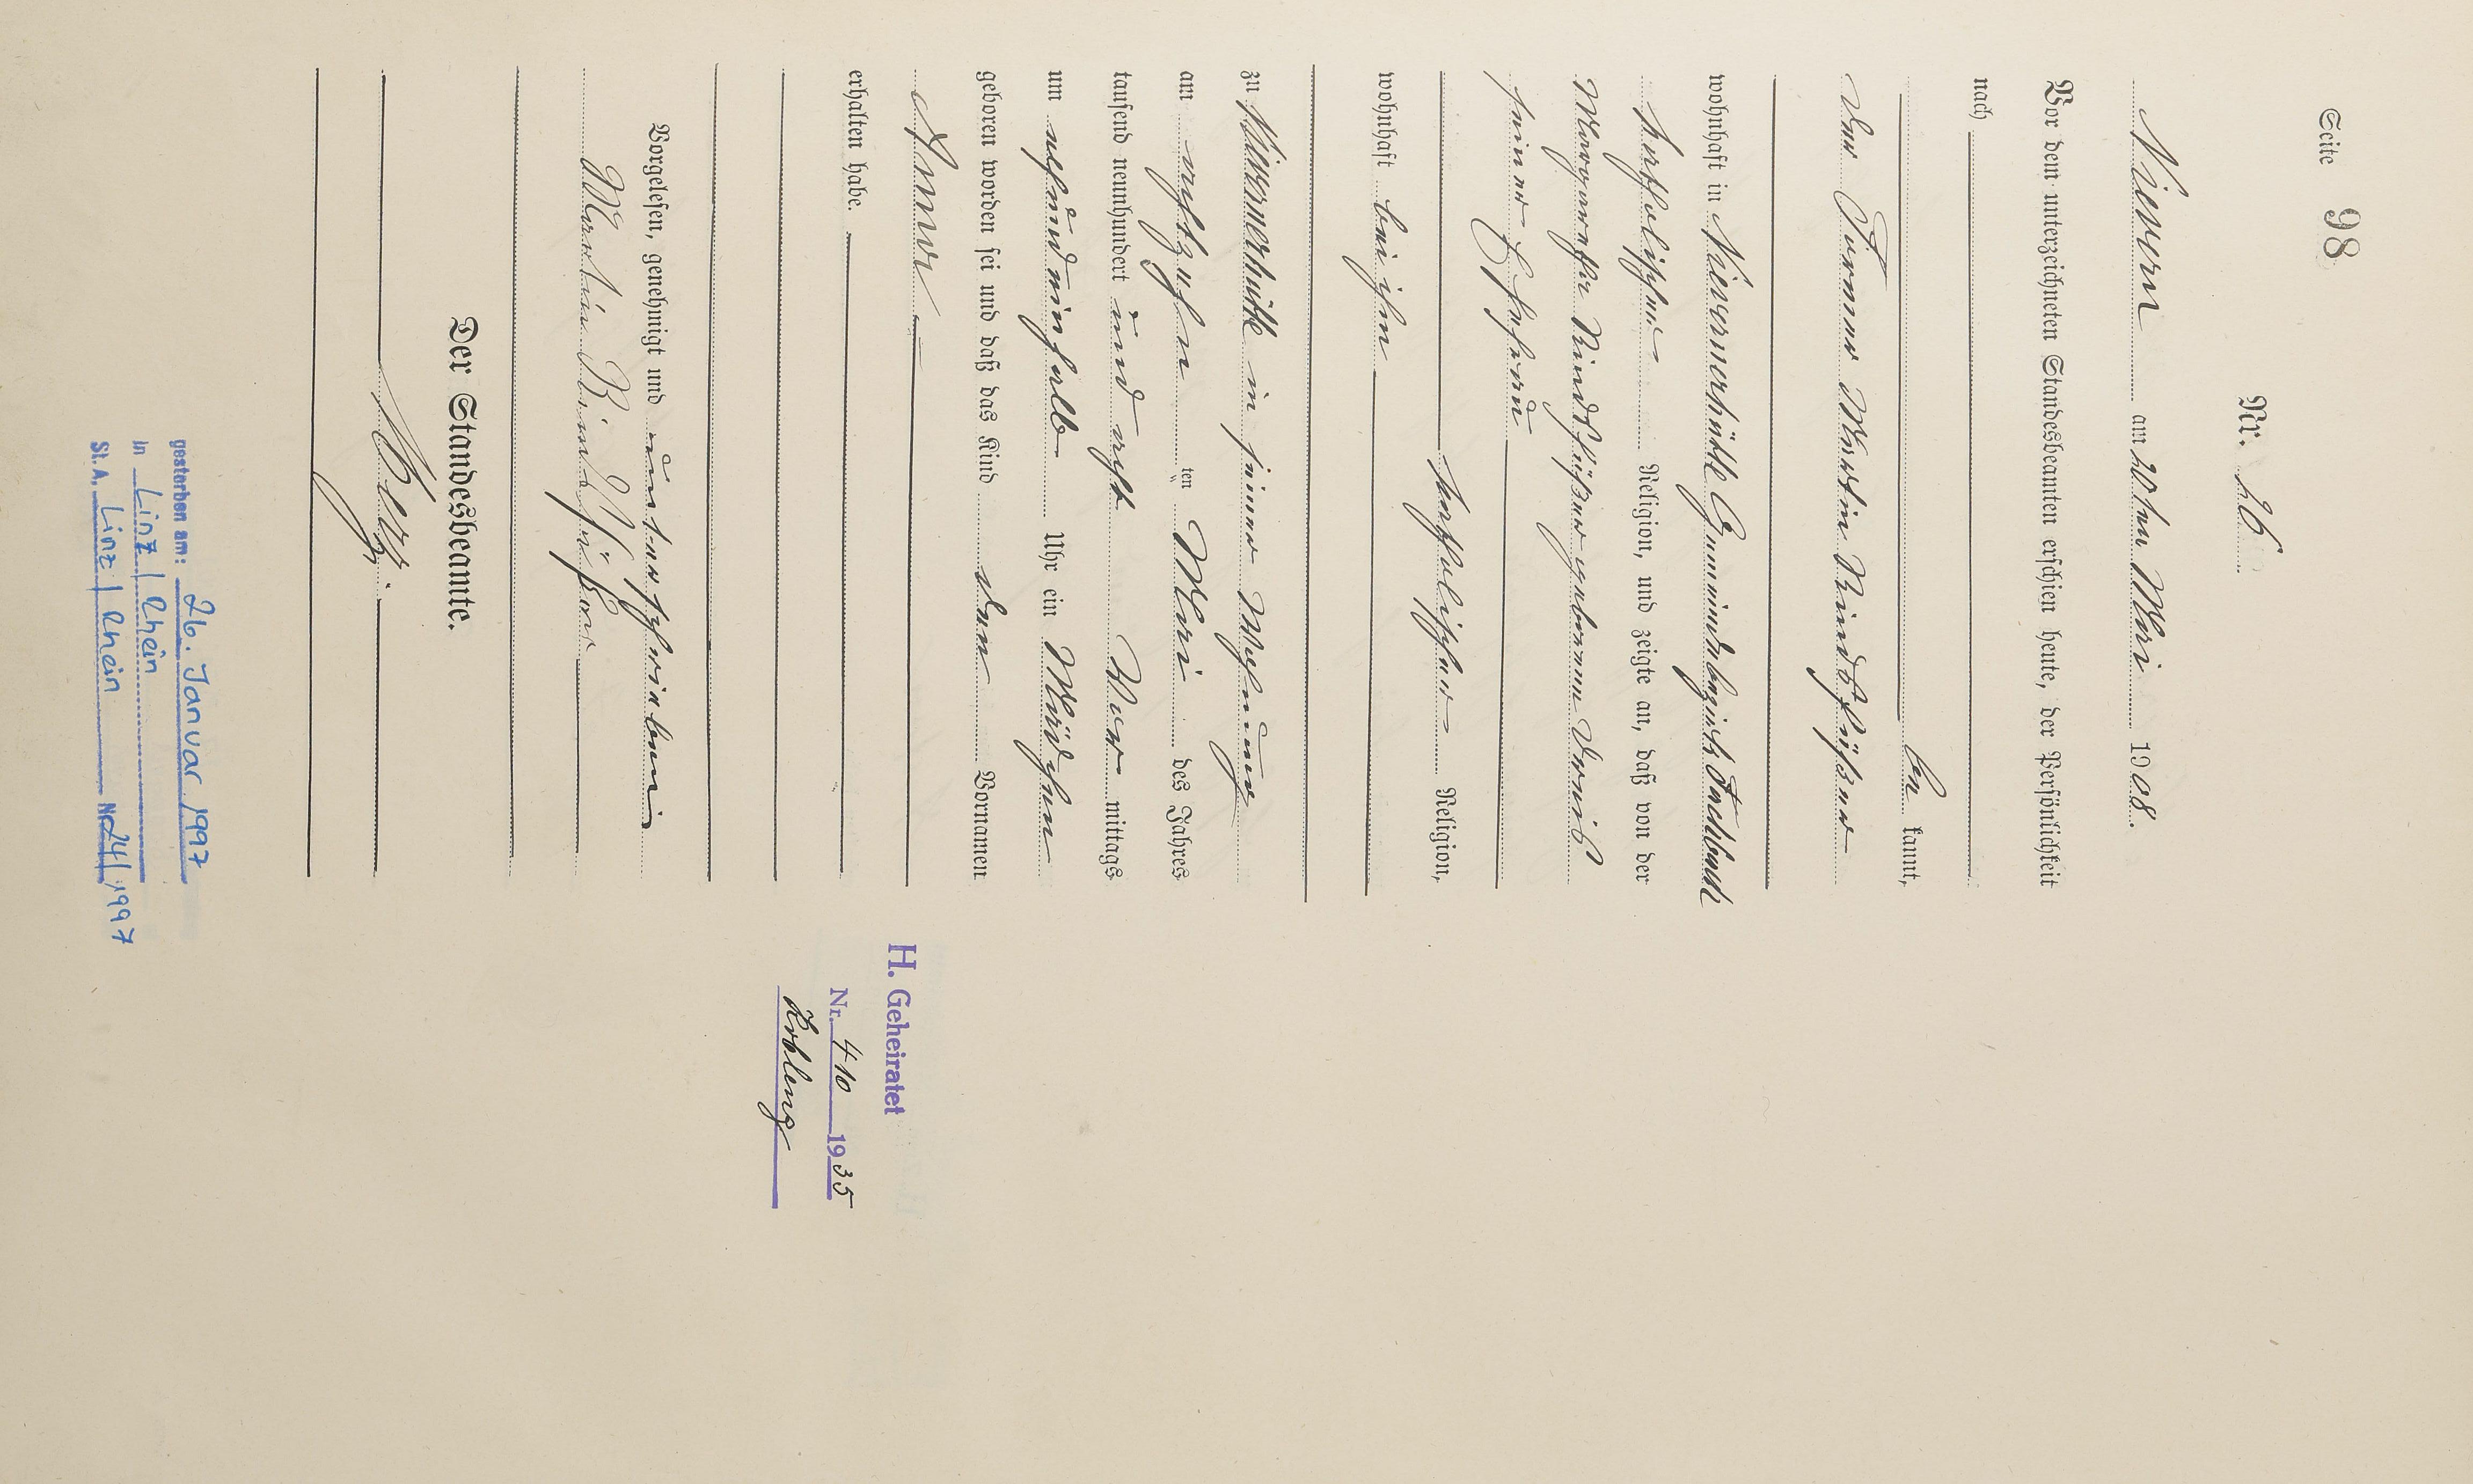 Seite 98
Nr. 26
Nievern am 20ten Mai 1908.
Vor dem unterzeichneten Standesbeamten erschien heute, der Persönlichkeit
nach
be kannt,
der Former Martin Rindsfüßer
wohnhaft in Nievernerhütte Gemeindebezirk Fachbach
katholischer Religion, und zeigte an, daß von der
Margarethe Rindsfüßer geborenen
seiner Ehefrau
katholischer Religion,
wohnhaft bei ihm
zu Nievernerhütte in seiner Wohnung
am achtzehn ten Mai des Jahres
tausend neunhundert und acht Vor mittags
um acheindeinhalb Uhr ein Mädchen
geboren worden sei und daß das Kind den Vornamen
Anna
erhalten habe.
Vorgelesen, genehmigt und unterschrieben
Martin Rindsfüßer
Der Standesbeamte.
H. Geheiratet
Nr. 410 1935
Koblenz
gestorben am: 26. Januar 1997
in Linz / Rhein
St. A. Linz / Rhein Nr. 24/1997